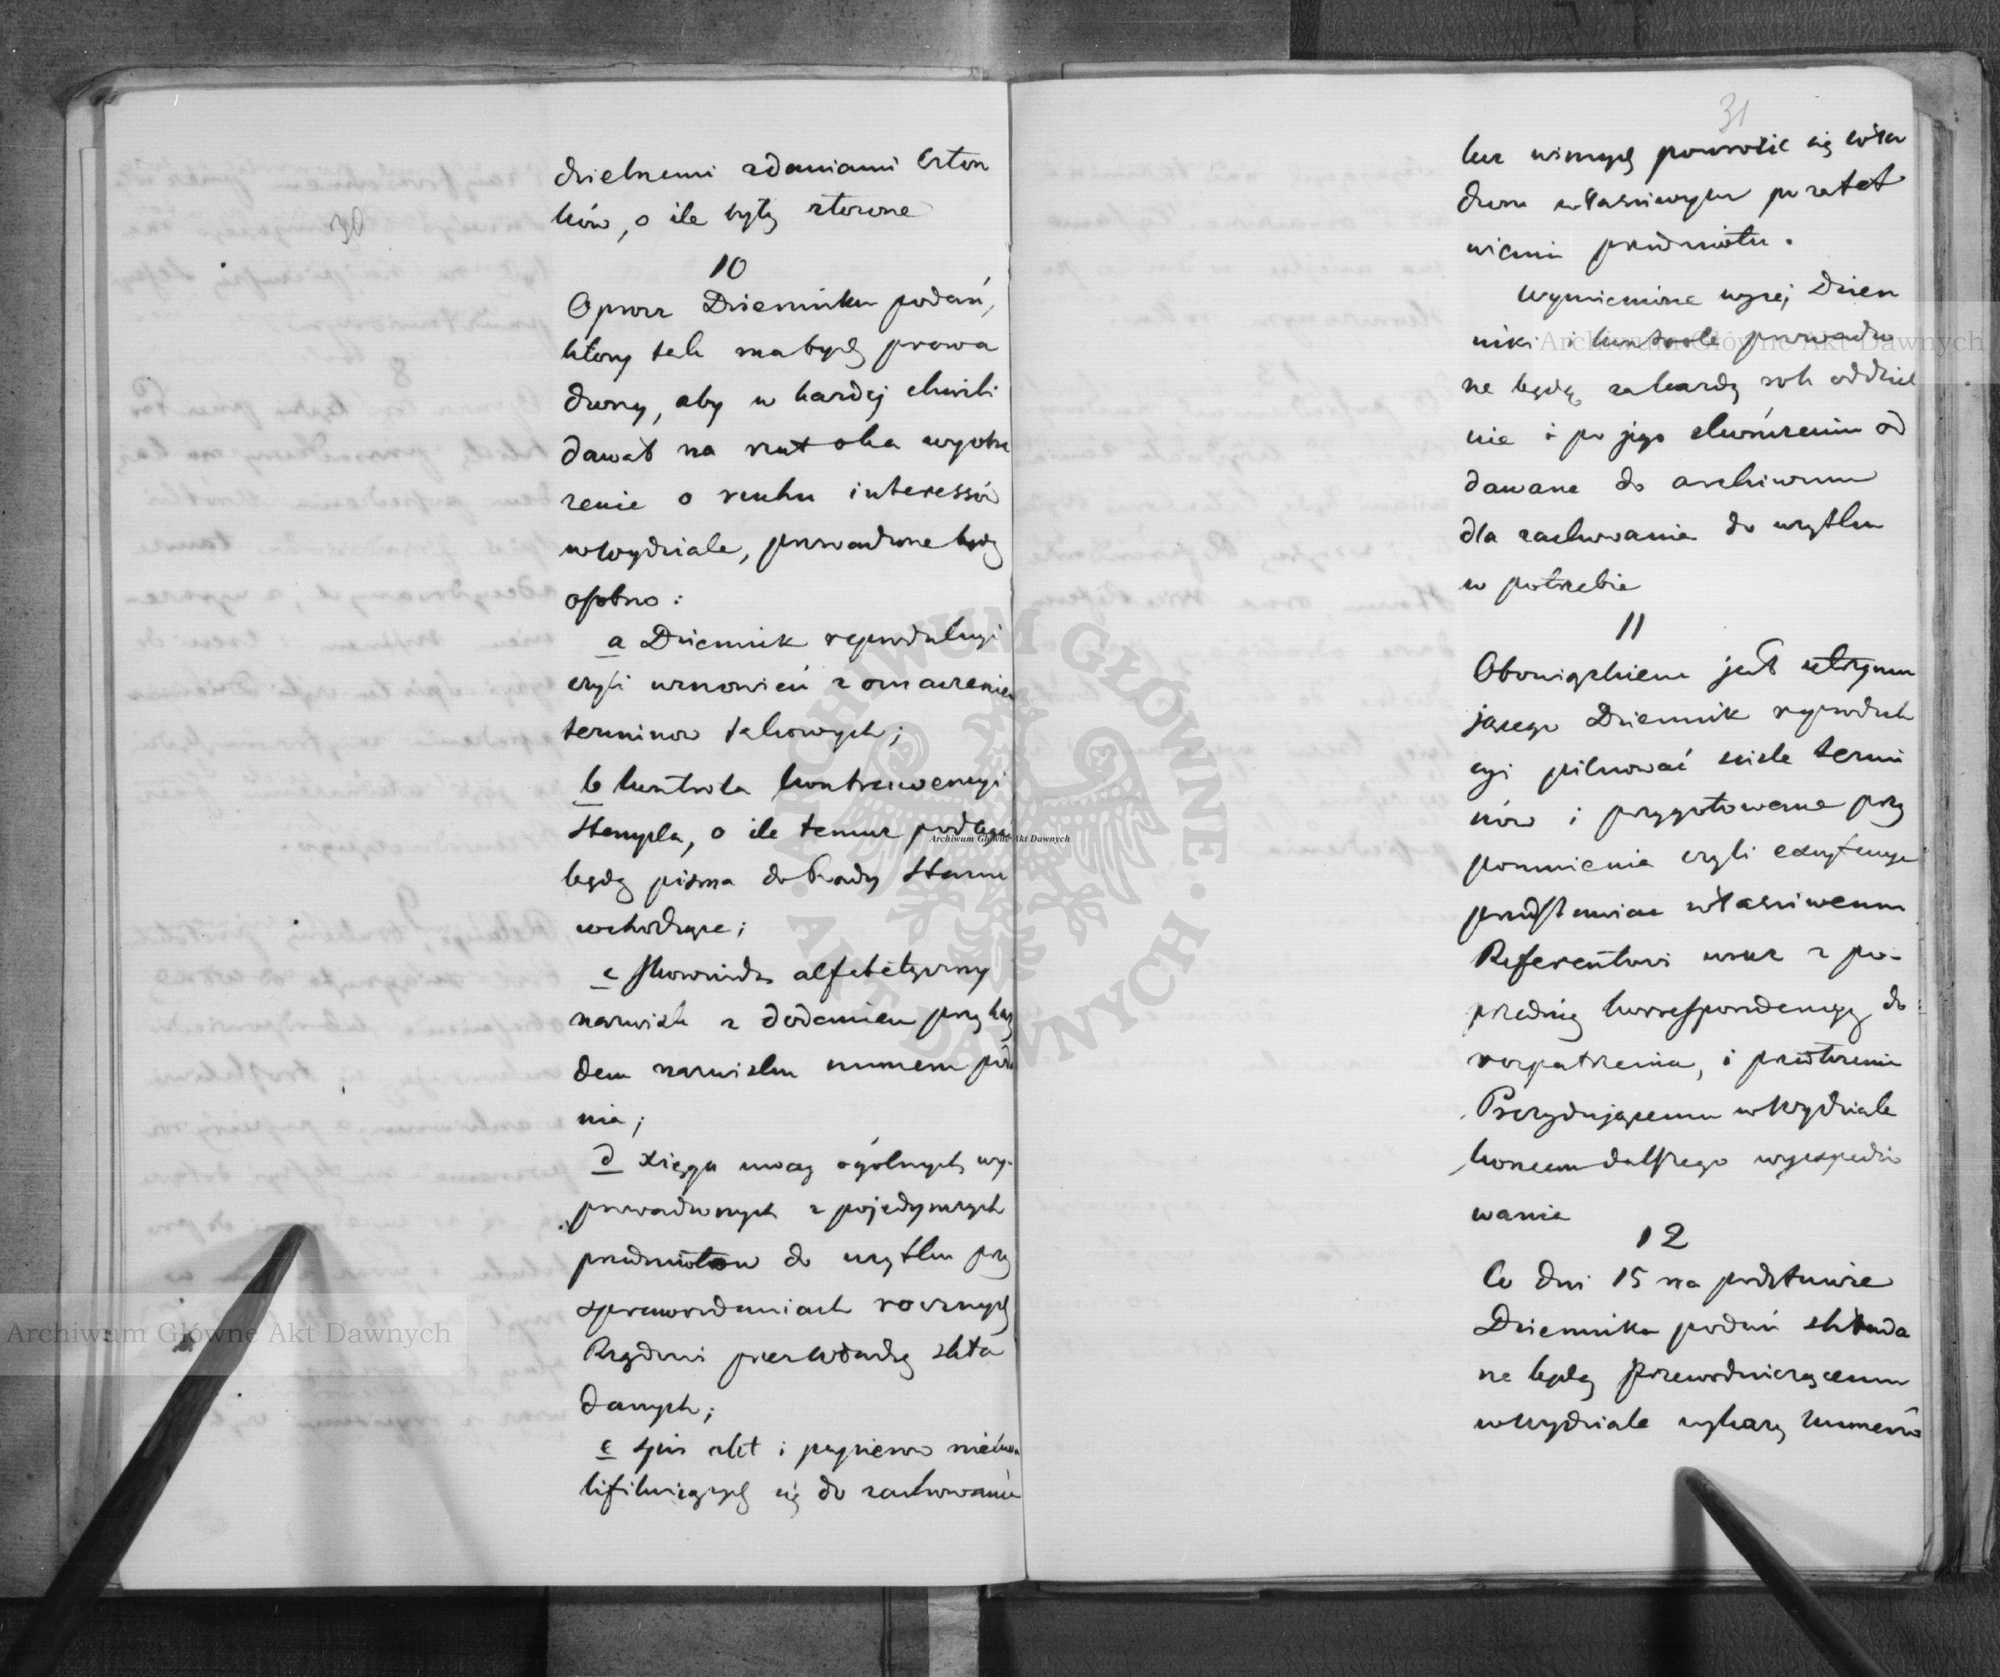 30
dzielnemi zdaniami Człon
ków, o ile były złożone
10
Oprócz Dziennika podań,
który tak ma być prowa
dzony, aby w każdej chwili
dawał na rzut oka wyobra
żenie o ruchu interessów
w Wydziale, prowadzone będą
osobno:
a Dziennik reprodukcyi
czyli wznowień z oznaczeniem
terminów takowych;
b kontrola kontrawencyi
stempla, o ile temuż podlegać
będą pisma do Rady Stanu
wchodzące;
c skorowidz alfabetyczny
nazwisk z dodaniem przy każ
dem nazwisku numeru poda
nia;
d xięga uwag ogólnych wy-
prowadzonych z pojedynczych
przedmiotow do użytku przy
sprawozdaniach rocznych
Rządowi przez Władzę skła
danych;
e spis akt i papierów niekwa
lifikujących się do zachowania
31
lecz winnych powrócić się wła
dzom właściwym po załat
wieniu przedmiotu.
Wymienione wyżej Dzien
niki i kontrole prowadzo
ne będą za każdy rok oddziel
nie i po jego skończeniu od
dawane do archiwum
dla zachowania do użytku
w potrzebie
11
Obowiązkiem jest utrzymu
jącego Dziennik reproduk
cyi pilnować ściśle termi
nów i przygotowane przy
pomnienia czyli excytacye
przedstawiać właściwemu
Referentowi wraz z po-
przednią korrespondencyą do
rozpatrzenia, i przedłożenia
Prezydującemu w Wydziale
koncem dalszego wyexpedio
wania
12
Co dni 15 na podstawie
Dziennika podań składa
ne będą Przewodniczącemu
w Wydziale wykazy numerów
Archiwum Główne Akt Dawnych
Archiwum Główne Akt Dawnych
Archiwum Główne Akt Dawnych
ARCHIWUM GŁÓWNE · AKT DAWNYCH ·